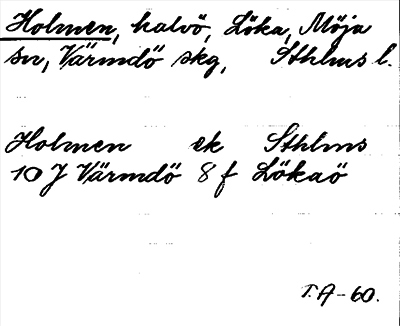 Holmen, halvö, Löka, Möja
sn, Värmdö skg, Sthlms l.
Holmen ek Sthlms
10 J Värmdö 8 f Lökaö
T.A-60.